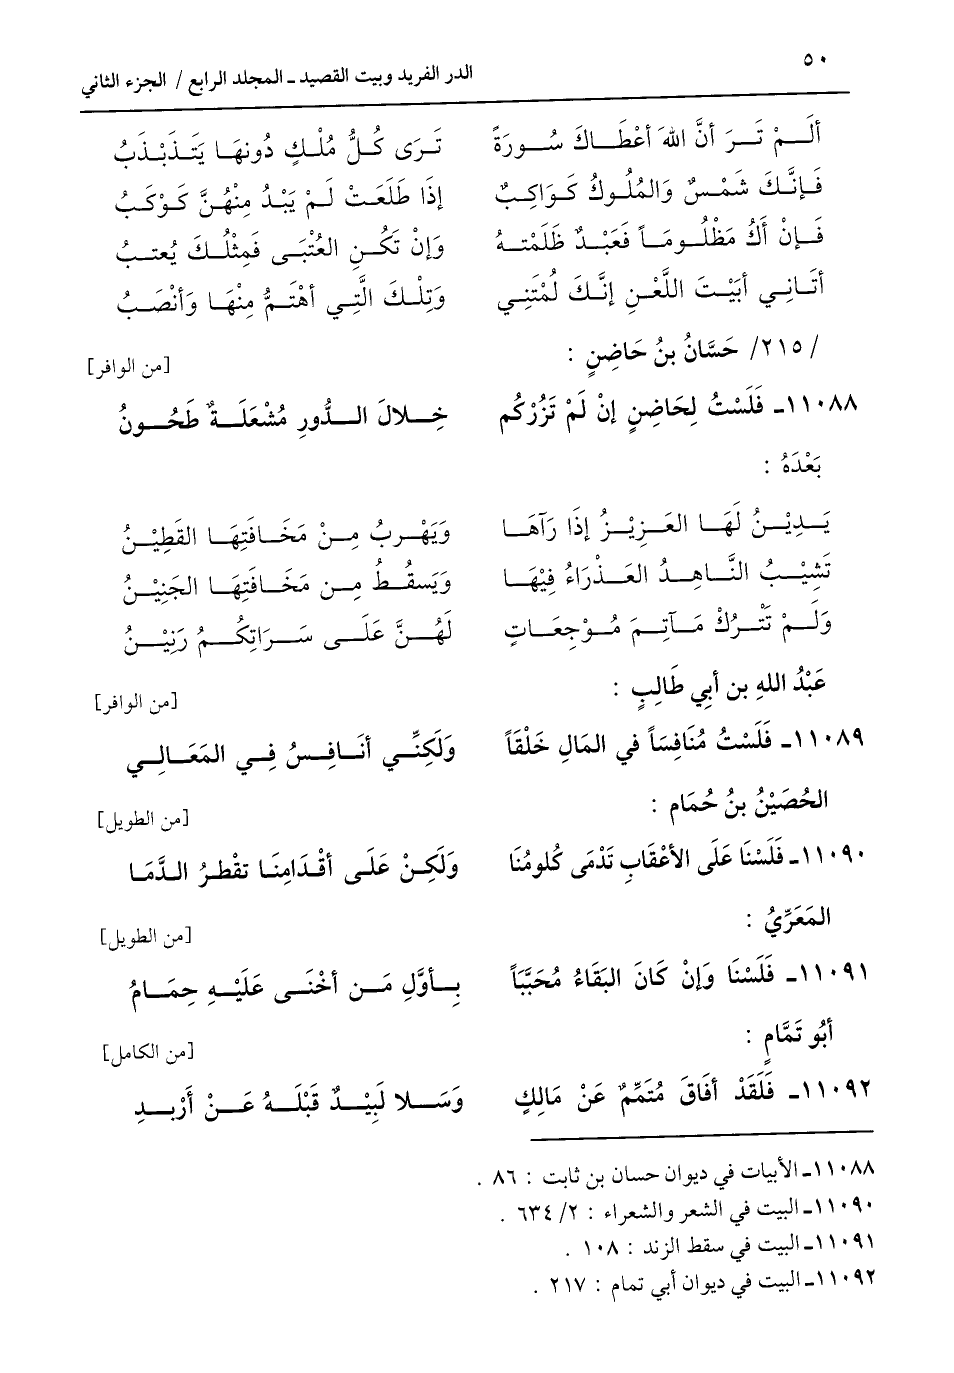 ٥٠
الدر الفريد وبيت القصيد ـ المجلد الرابع / الجزء الثاني
أَلَمْ تَرَ أنَّ اللهَ أعْطَاكَ سُورَةً تَرَى كُلُّ مُلْكٍ دُونهَا يَتَذَبْذَبُ
فَإنَّكَ شَمْسٌ وَالمُلُوكُ كَوَاكِبٌ إذَا طَلَعَتْ لَمْ يَبْدُ مِنْهُنَّ كَوْكَبُ
فَإنْ أكُ مَظْلُومَاً فَعَبْدٌ ظَلَمْتهُ وَإنْ تَكُنِ العُتْبَى فَمِثْلُكَ يُعتبُ
أتَانِي أبَيْتَ اللَّعْنِ إنَّكَ لُمْتَنِي وَتِلْكَ الَّتِي أهْتَمُّ مِنْهَا وَأنْصَبُ
/٢١٥/ حَسَّانُ بنُ حَاضِنٍ : [من الوافر]
١١٠٨٨ـ فَلَسْتُ لِحَاضِنٍ إنْ لَمْ تَزُرْكُم خِلالَ الدُّورِ مُشْعَلَةٌ طَحُونُ
بَعْدَهُ :
يَدِيْنُ لَهَا العَزِيْزُ إذَا رَآهَا وَيَهْرِبُ مِنْ مَخَافَتِهَا القَطِيْنُ
تَشِيْبُ النَّاهِدُ العَذْرَاءُ فِيْهَا وَيَسقُطُ مِن مَخَافَتِهَا الجَنِيْنُ
وَلَمْ تَتْرُكْ مَآتِمَ مُوْجِعَاتٍ لَهُنَّ عَلَى سَرَاتِكُمُ رَنِيْنُ
عَبْدُ اللهِ بن أبي طَالِبٍ : [من الوافر]
١١٠٨٩ـ فَلَسْتُ مُنَافِسَاً في المَالِ خَلْقَاً وَلَكِنِّي أنَافِسُ فِي المَعَالِي
الحُصَيْنُ بنُ حُمَام : [من الطويل]
١١٠٩٠ـ فَلَسْنَا عَلَى الأعْقَابِ تَدْمَى كُلومُنَا وَلَكِنْ عَلَى أقْدَامِنَا تقْطرُ الدَّمَا
المَعَرِّيُ : [من الطويل]
١١٠٩١ـ فَلَسْنَا وَإنْ كَانَ البَقَاءُ مُحَبَّبَاً بِأوَّلِ مَن أخْنَى عَلَيْهِ حِمَامُ
أبُو تَمَّامٍ : [من الكامل]
١١٠٩٢ـ فَلَقَدْ أفَاقَ مُتَمِّمٌ عَنْ مَالِكٍ وَسَلا لَبِيْدٌ قَبْلَهُ عَنْ أرْبدِ
١١٠٨٨ـ الأبيات في ديوان حسان بن ثابت : ٨٦ .
١١٠٩٠ـ البيت في الشعر والشعراء : ٢/ ٦٣٤ .
١١٠٩١ـ البيت في سقط الزند : ١٠٨ .
١١٠٩٢ـ البيت في ديوان أبي تمام : ٢١٧ .